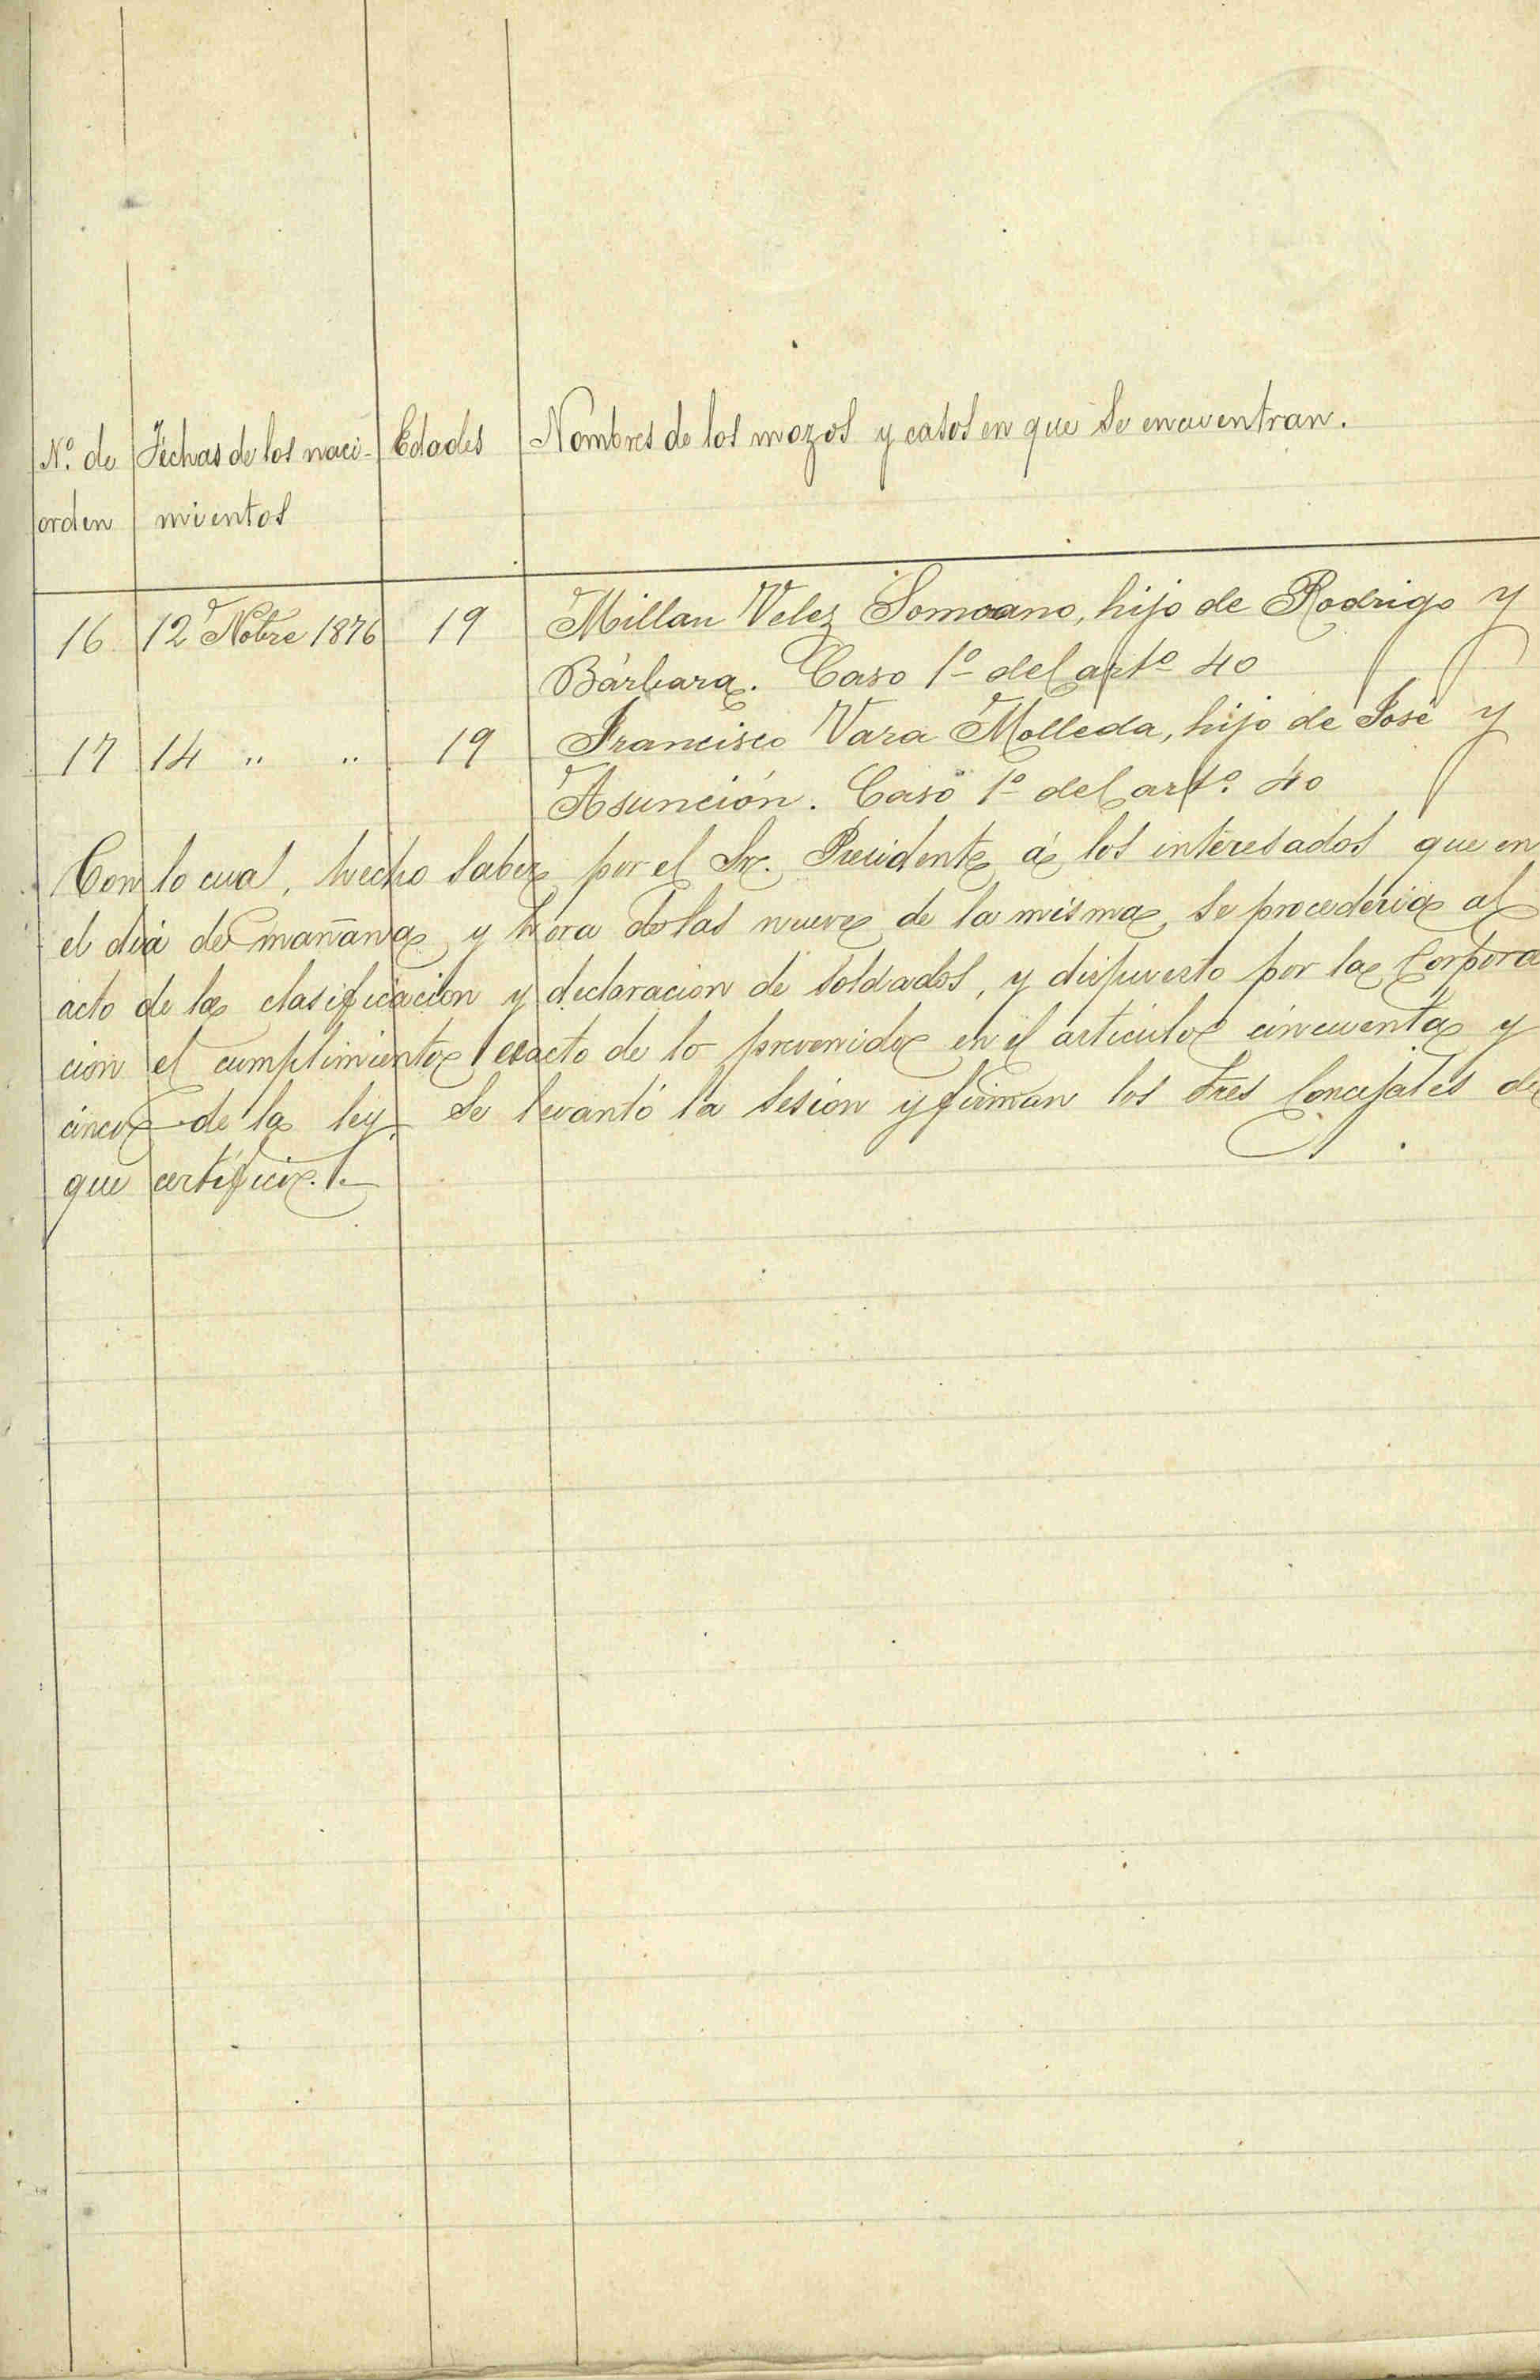 Nº. de Fechas de los naci- Edades Nombres de los mozos y casos en que se encuentran.
orden mientos
16 12 Nobre 1876 19 Millan Velez Somoano, hijo de Rodrigo y
Bárbara. Caso 1º del artº 40
17 14 " " 19 Francisco Vara Molleda, hijo de José y
Asunción. Caso 1º del artº. 40
Con lo cual, hecho saber por el Sr. Presidente á los interesados que en
el dia de mañana y hora de las nueve de la misma, se procederia al
acto de la clasificacion y declaracion de soldados, y dispuesto por la Corpora
cion el cumplimiento exacto de lo prevenido en el articulo cincuenta y
cinco de la ley, se levantó la sesion y firman los Sres Concejales de
que certifico.